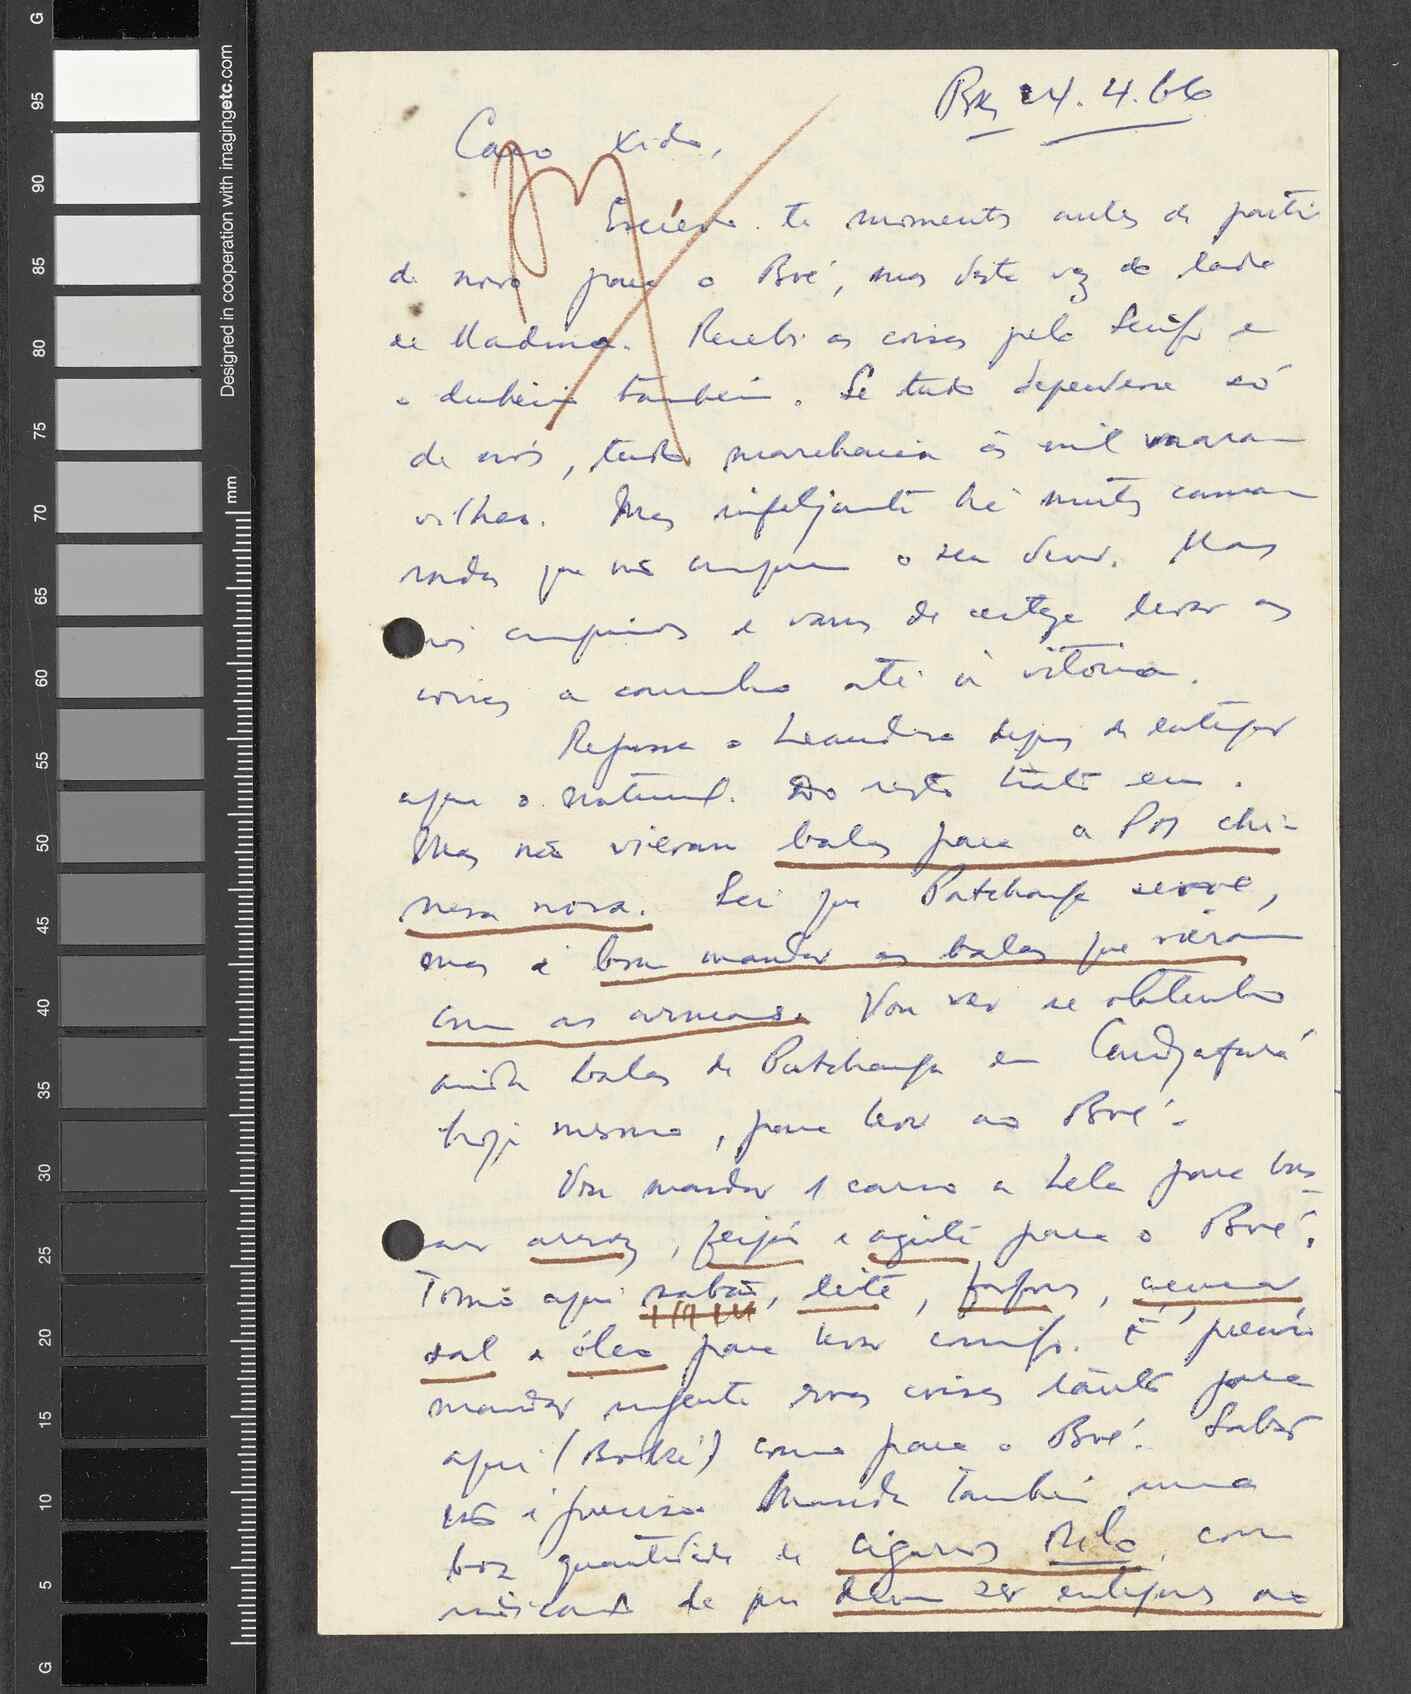 Bké 24.4.66
Caro Xido,
Escrevo-te momentos antes de partir
de novo para o Boé, mas desta vez do lado
de Madina. Recebi as coisas pelo Serifo e
o dinheiro também. Se tudo dependesse só
de nós, tudo marcharia às mil mara-
vilhas. Mas infelizmente há muitos cama-
radas que não cumprem o seu dever. Mas
nós cumprimos e vamos de certeza levar as
coisas a caminho até à vitória.
Regressa o Leandro depois de entregar
aqui o material. Do resto trato eu.
Mas não vieram balas para a P.M. chi-
nesa nova. Sei que Patchanga serve,
mas é bom mandar as balas que vieram
com as armas. Vou ver se obtenho
ainda balas de Patchanga em Candjafará
hoje mesmo, para levar ao Boé.
Vou mandar 1 carro a Lela para bus-
car arroz, feijão e azeite para o Boé.
Tomo aqui sabão, leite, fósforos, açucar
sal e óleo para levar comigo. É preciso
mandar urgente essas coisas tanto para
aqui (Boké) como para o Boé. Sabão
não é preciso. Manda também uma
boa quantidade de cigarros Milo, com
indicação de que devem ser entregues ao
G
95
90
85
80
75
70
65
60
55
50
45
40
35
30
25
20
15
10
5
G
mm
Designed in cooperation with imagingetc.com